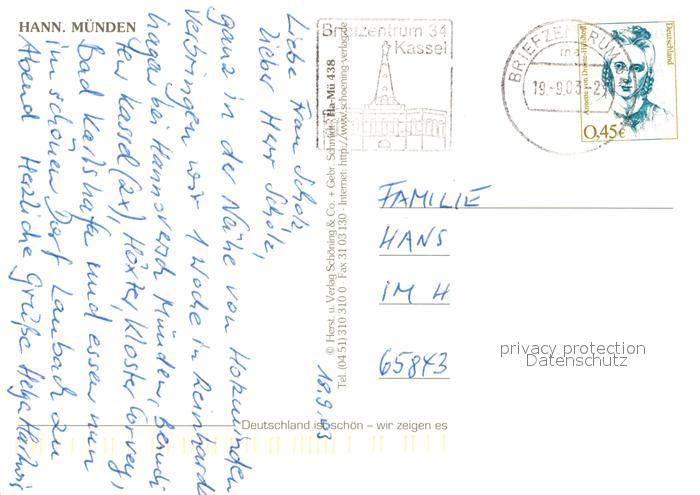 HANN. MÜNDEN
Liebe Frau Scholz,
lieber Herr Scholz,
ganz in der Nähe von Holzminden
verbringen wir 1 Woche in Reinhards-
hagen bei Hannoversch Münden, besuch
ten Kassel (2x), Höxter, Kloster Corvey,
Bad Karlshafen und essen nun
im schönen Dorf Laubach zu
Abend Herzliche Grüße Helga Hartwig
18.9.03
© Herst. u. Verlag Schöning & Co. + Gebr. Schmidt Ha-Mü 438
Tel. (04 51) 310 310 0 · Fax 31 03 130 · Internet: http://www.schoening-verlag.de
Deutschland ist schön – wir zeigen es
Briefzentrum 34
Kassel
BRIEFZENTRUM
19.-9.03-21
Deutschland
Annette von Droste-Hülshoff
0,45€
FAMILIE
HANS
IM H
65843
privacy protection
Datenschutz